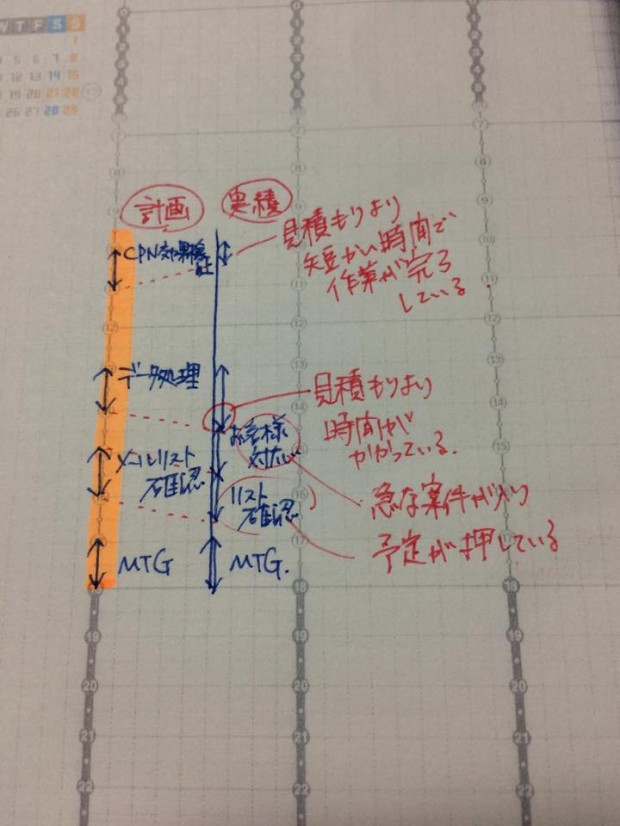 W T F S S
計画
実績
CPN効果検証
見積もりより
短かい時間で
作業が完了
している
データ処理
見積もりより
時間が
かかっている。
お客様
対応
メールリスト
確認
リスト
確認
急な案件が入り
予定が押している
MTG
MTG.
9
10
11
12
13
14
16
17
18
18
18
19
19
19
20
20
20
21
21
21
22
22
22